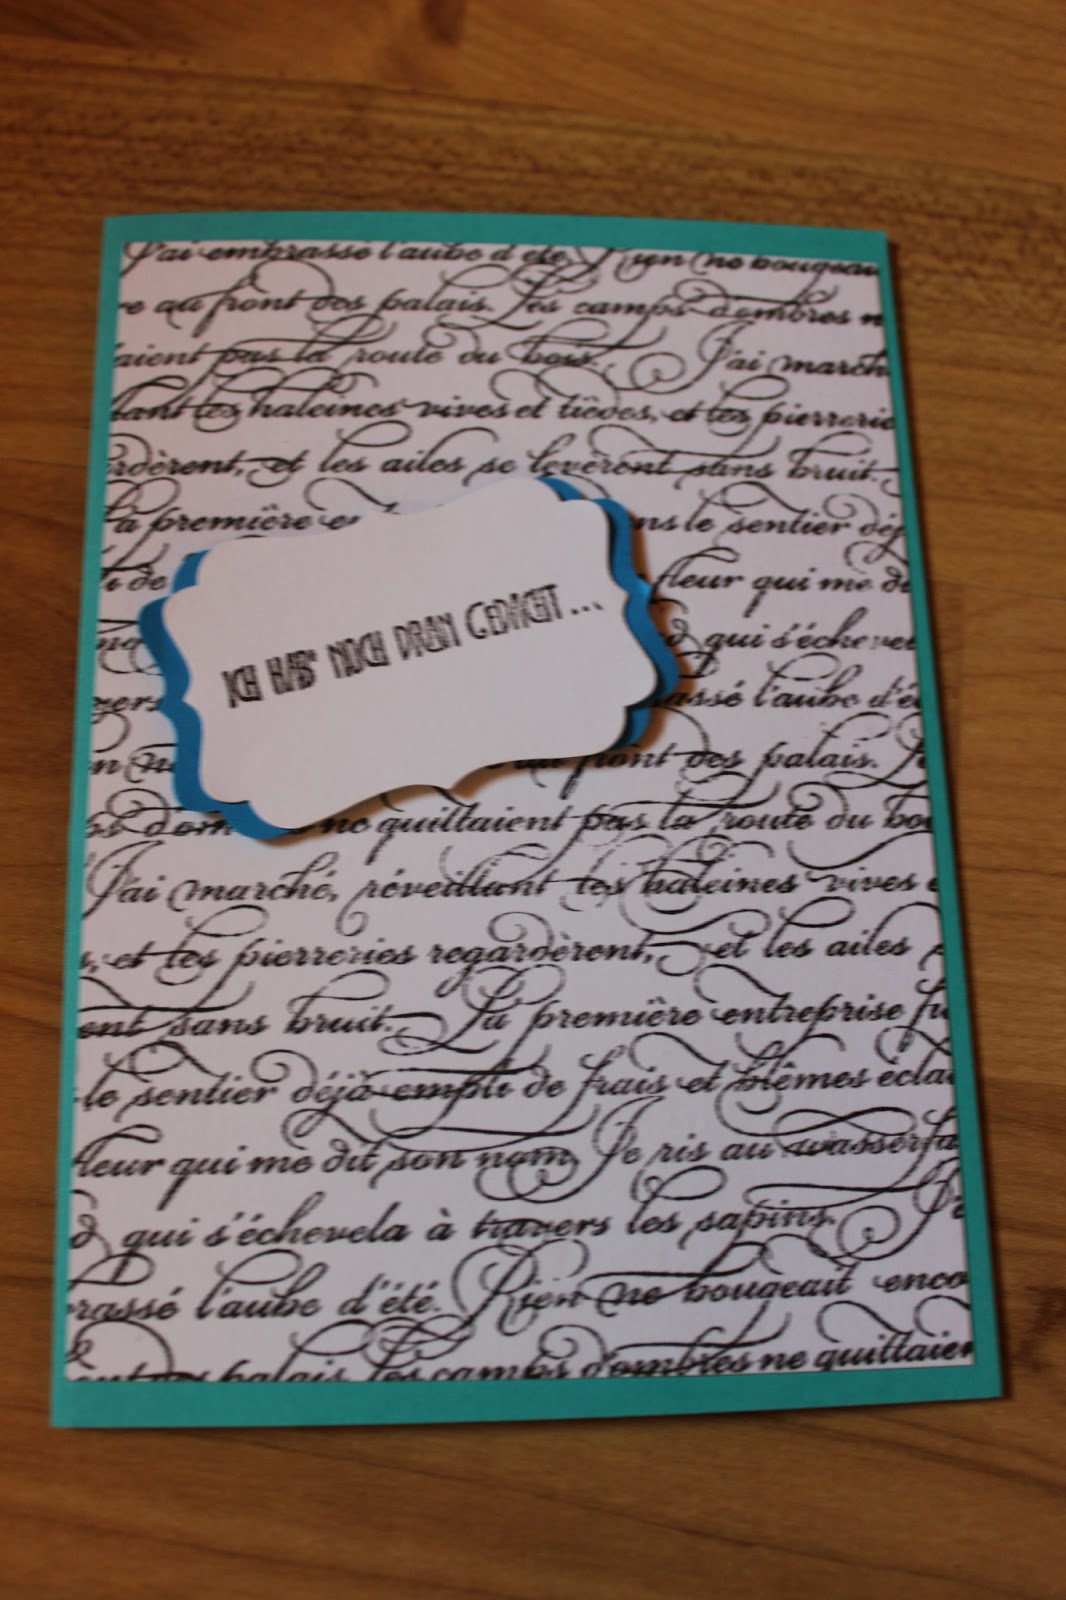 J'ai embrassé l'aube d'été. Rien ne bougeai
re au front des palais. Les camps d'ombres n
laient pas la route du bois. J'ai march
lant les haleines vives et tièdes, et les pierrerie
rdèrent, et les ailes se levèrent sans bruit.
La première en ns le sentier déj
i de fleur qui me di
no d qui s'écheve
vers assé l'aube d'é
n n au front des palais. Je
bs d'om s ne quittaient pas la route du boi
J'ai marché, réveillant les haleines vives e
s, et les pierreries regardèrent, et les ailes s
ent sans bruit. La première entreprise fu
le sentier déjà empli de frais et blêmes écla
fleur qui me dit son nom. Je ris au wasserfa
d qui s'échevela à travers les sapins. J'a
rassé l'aube d'été. Rien ne bougeait enco
ont des palais. Les camps d'ombres ne quittaien
ICH HAB' NOCH DRAN GEDACHT...